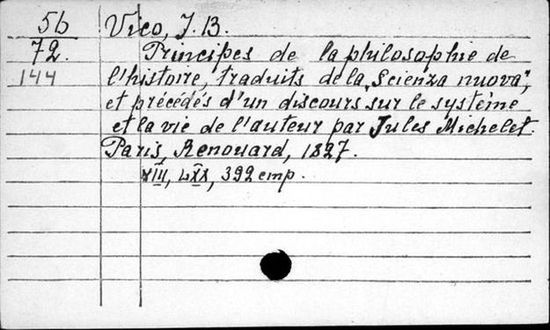 56 Vico, J. B.
72. Principes de la philosophie de
144 l'histoire, traduits de la „Scienza nuova",
et précédés d'un discours sur le système
et la vie de l'auteur par Jules Michelet.
Paris, Renouard, 1827.
XIII, LXX, 392 стр.